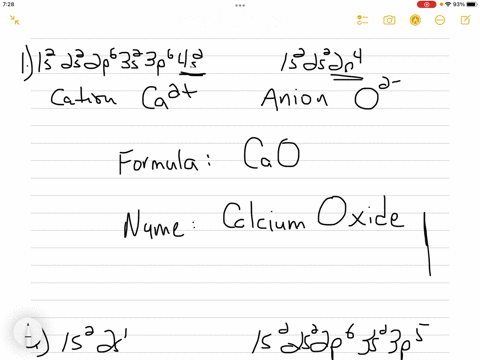 7:28
93%
1.) 1s² 2s² 2p⁶ 3s² 3p⁶ 4s² 1s² 2s² 2p⁴
Cation Ca²⁺ Anion O²⁻
Formula: CaO
Name: Calcium Oxide
1s² 2s¹ 1s² 2s² 2p⁶ 3s² 3p⁵